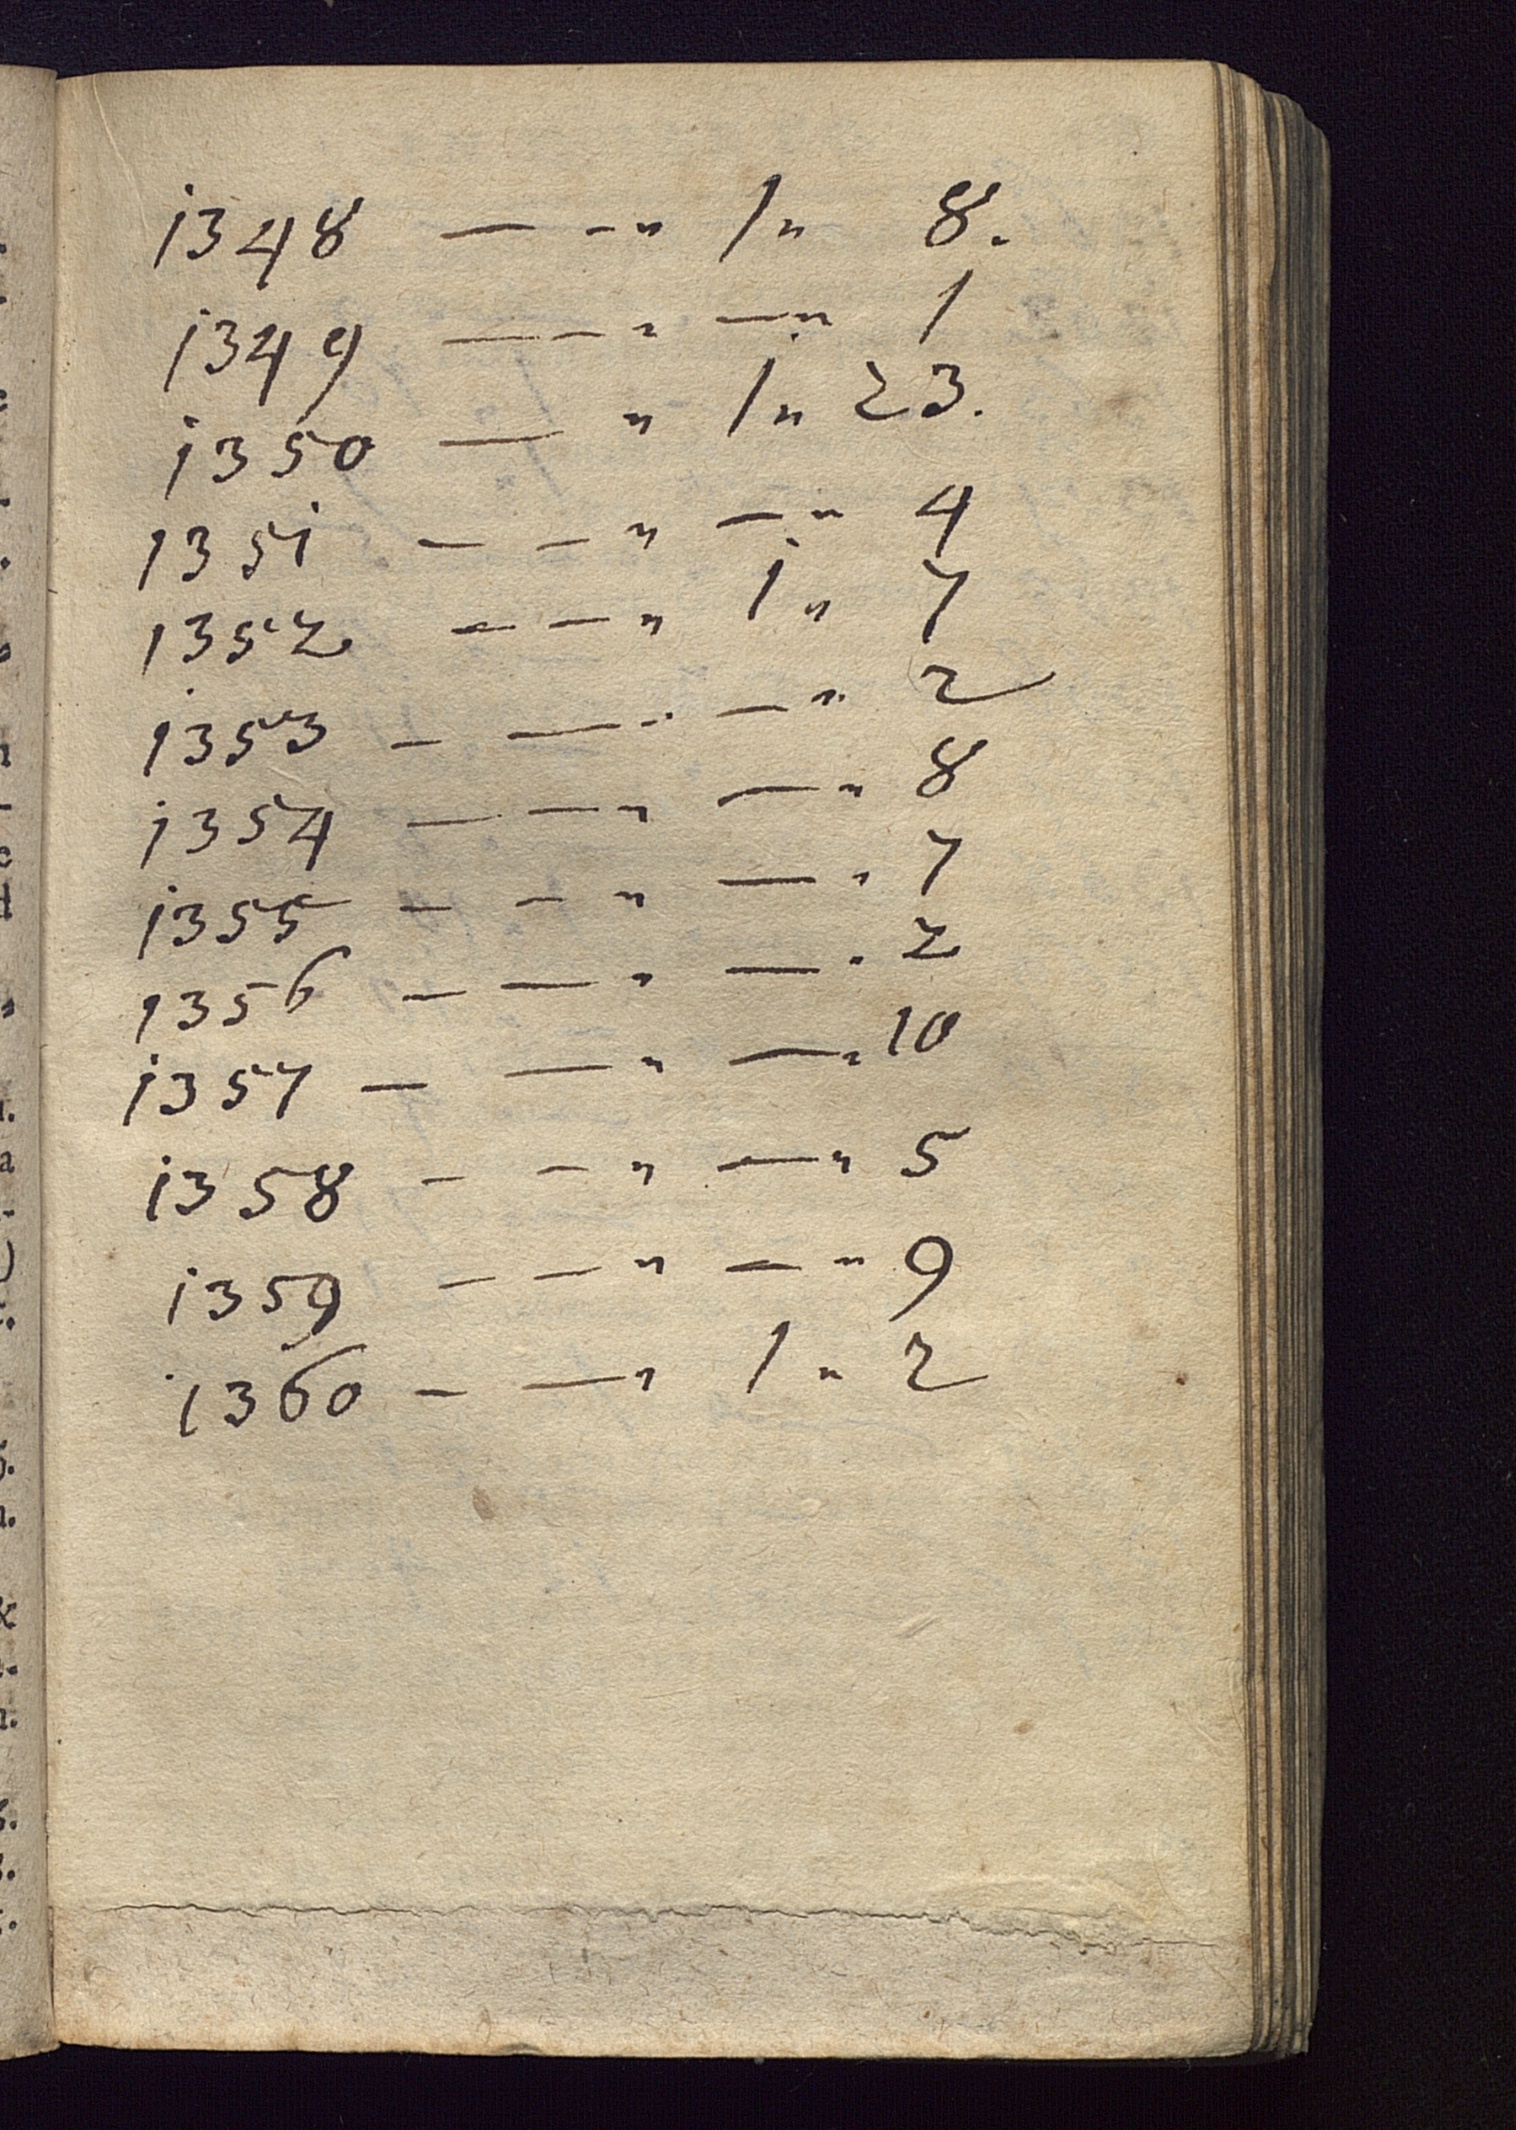 1348 — - " 1 " 8.
1349 — — " — " 1
1350 — " 1 " 23.
1351 — — " — " 4
1352 — — " 1 " 7
1353 — — " — " 2
1354 — — " — " 8
1355 — — " — " 7
1356 — — " — " 2
1357 — — " — " 10
1358 — — " — " 5
1359 — — " — " 9
1360 — — " 1 " 2